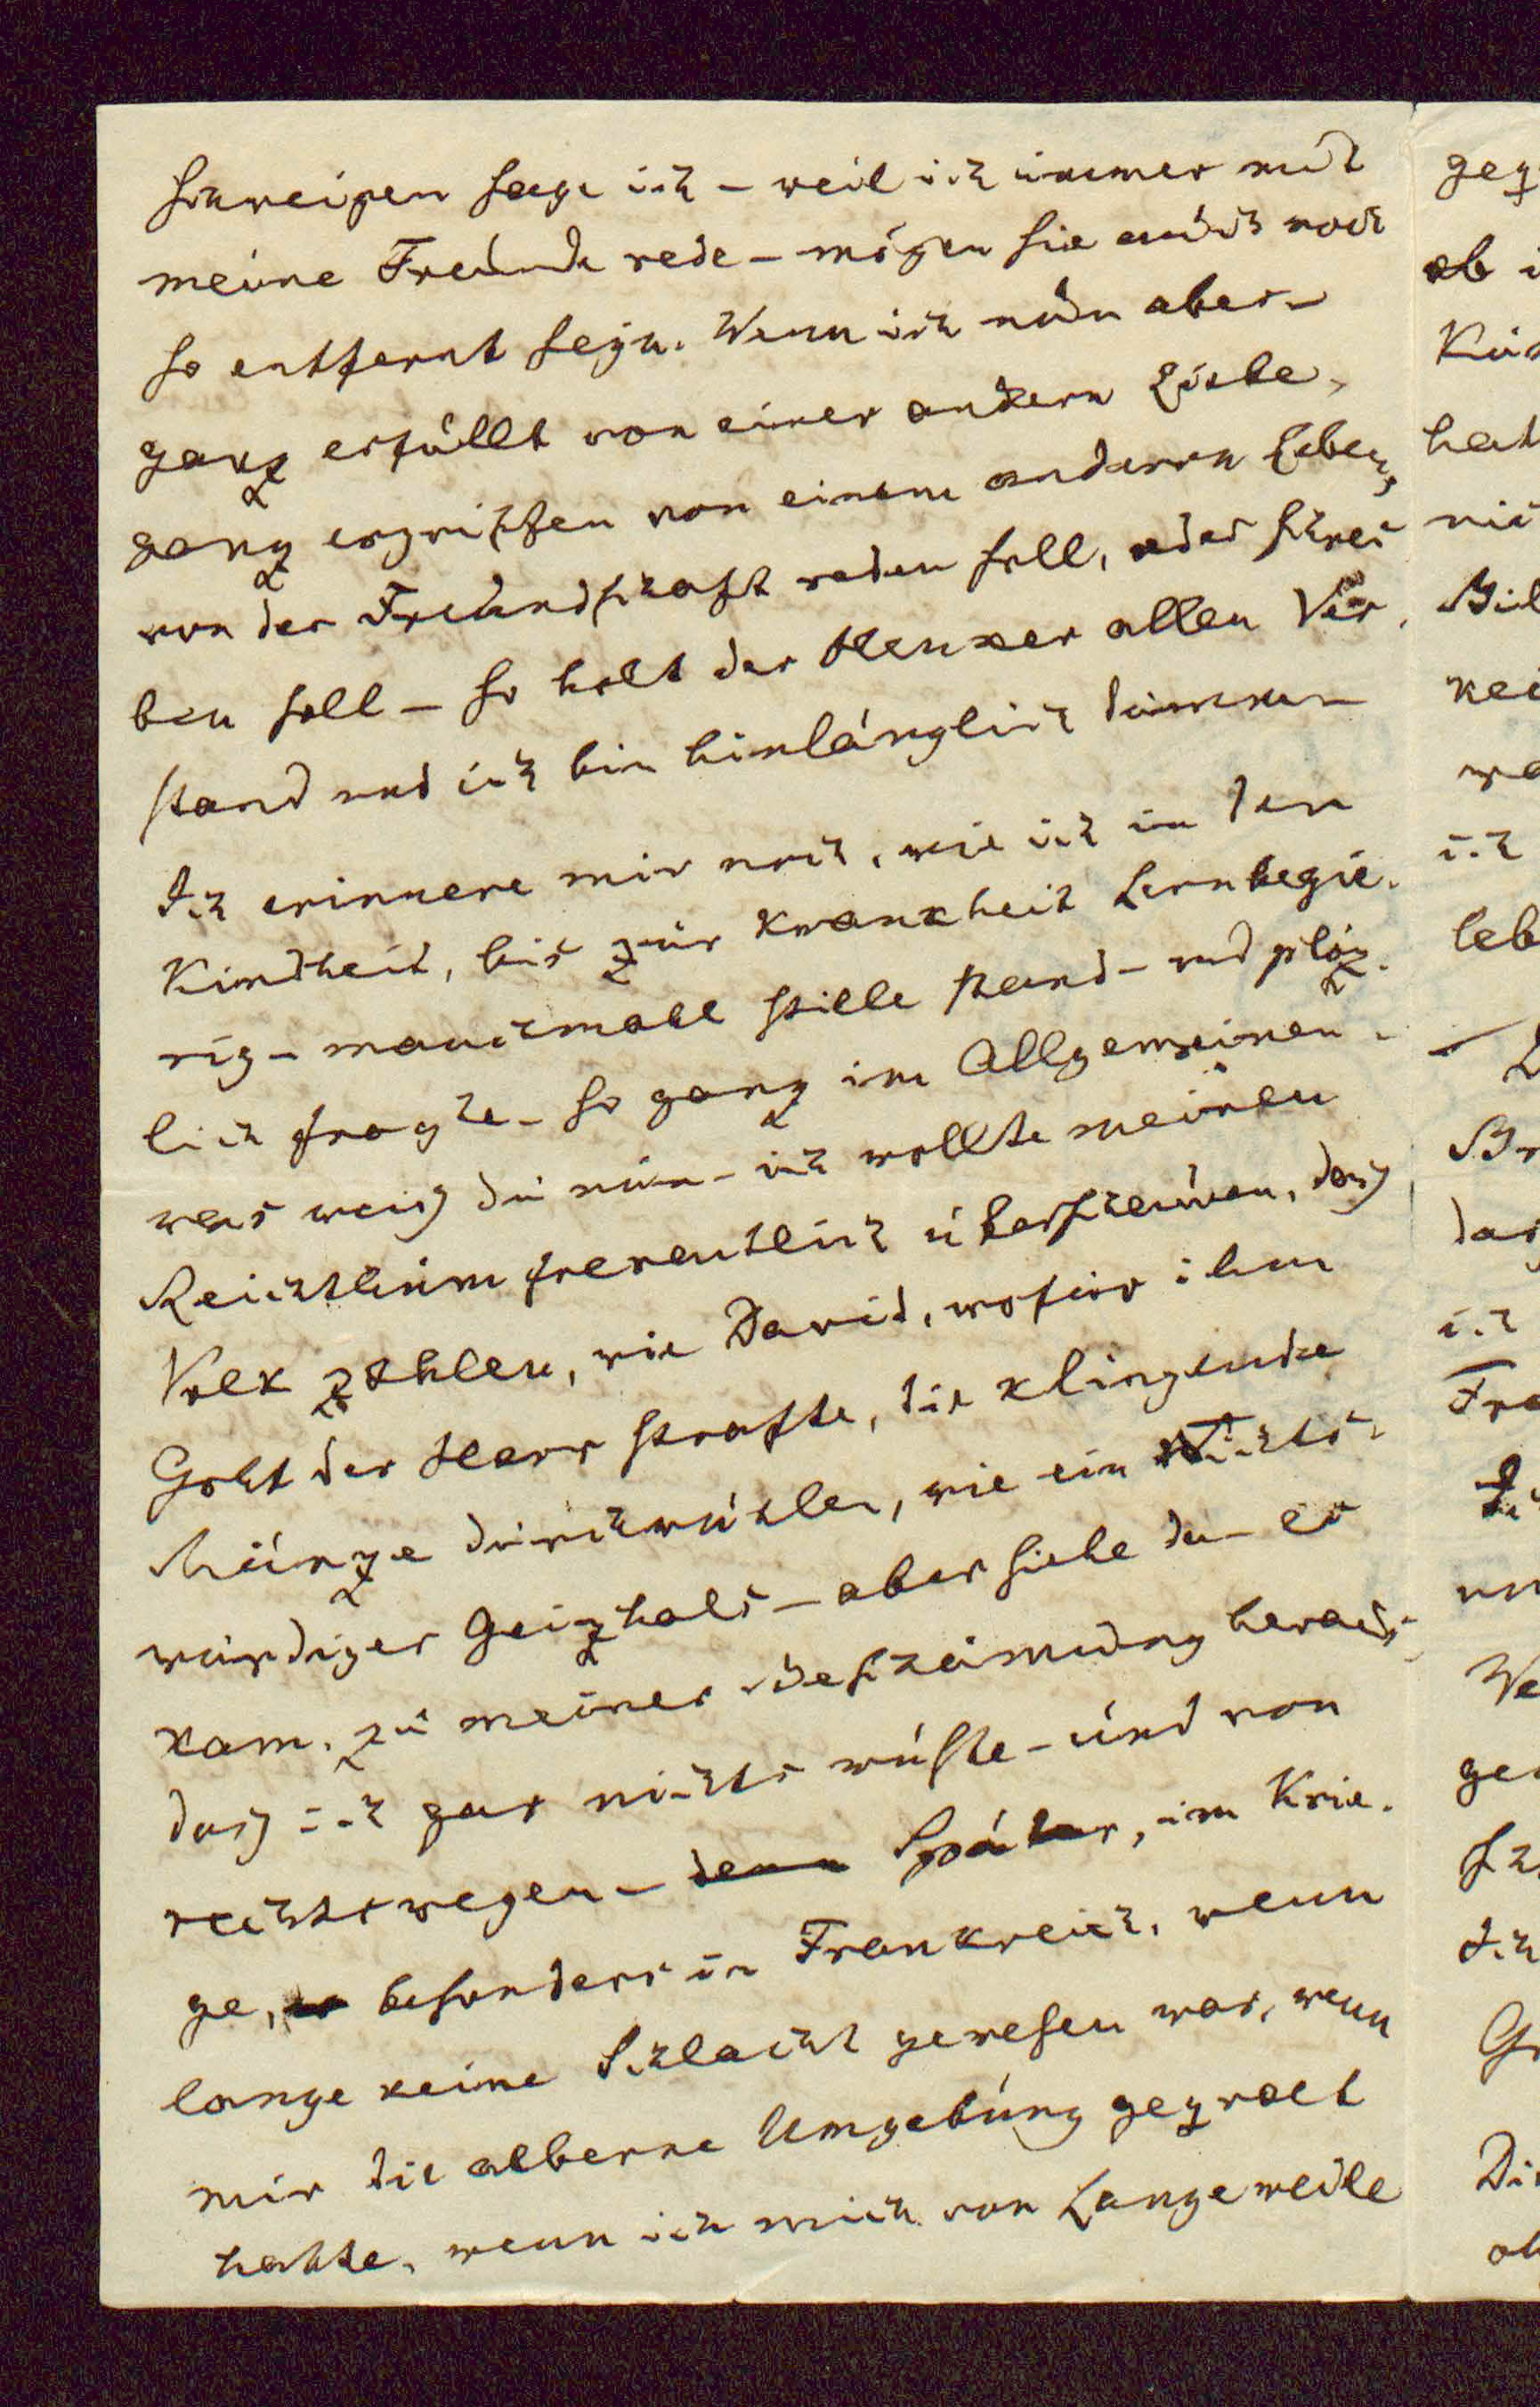 schweigen sage ich – weil ich immer mit
meine Freunde rede – mögen sie auch noch
so entfernt seyn. Wenn ich nun aber –
ganz erfüllt von einer andern Liebe,
ganz ergriffen von einem anderen Leben,
von der Freundschaft reden soll, oder schrei
ben soll – so holt der Henker allen Ver
stand und ich bin hinlänglich dumm –
Ich erinnere mir noch, wie ich in den
Kindheit, bis zur Krankheit Lernbegie-
rig – manchmahl stille stand – und plöz-
lich fragte – so ganz im Allgemeinen –
was weiß du nun – ich wollte meinen
Reichthum freventlich überschauen, das
Volk zählen, wie David, wofür ihm
Gott der Herr strafte, die klingende
Münze durchwühlen, wie ein Nichts-
würdiger Geizhals – aber siehe da – es
kam, zu meiner Beschämung heraus,
daß ich gar nichts wüste – und von
rechtswegen – denn Später, im Krie-
ge, besonders in Frankreich, wenn
lange keine Schlacht gewesen war, wenn
mir die alberne Umgebung gequält
hatte, wenn ich mich von Langeweile
geq
ob i
hat
nic
kei
wa
ich
leb
Br
das
ich
Fra
un
We
ge
Ich
Gr
Di